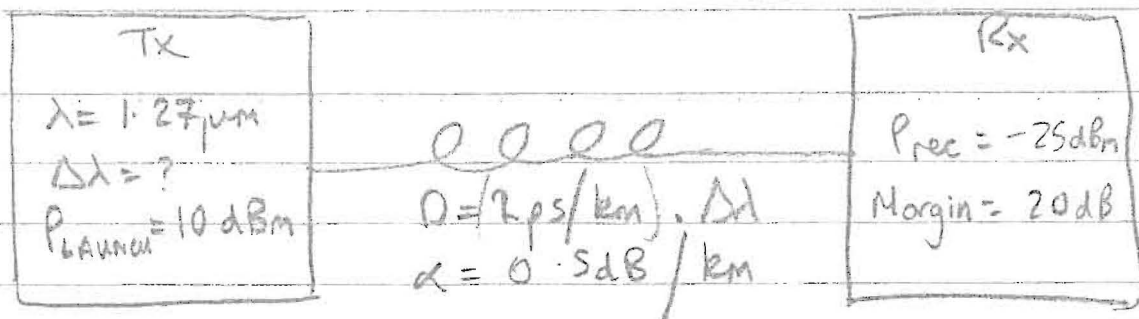 Tx
λ = 1.27μm
Δλ = ?
P LAUNCH = 10 dBm
D = (2 ps/km). Δλ
α = 0.5dB/km
Rx
Prec = -25dBm
Margin = 20dB